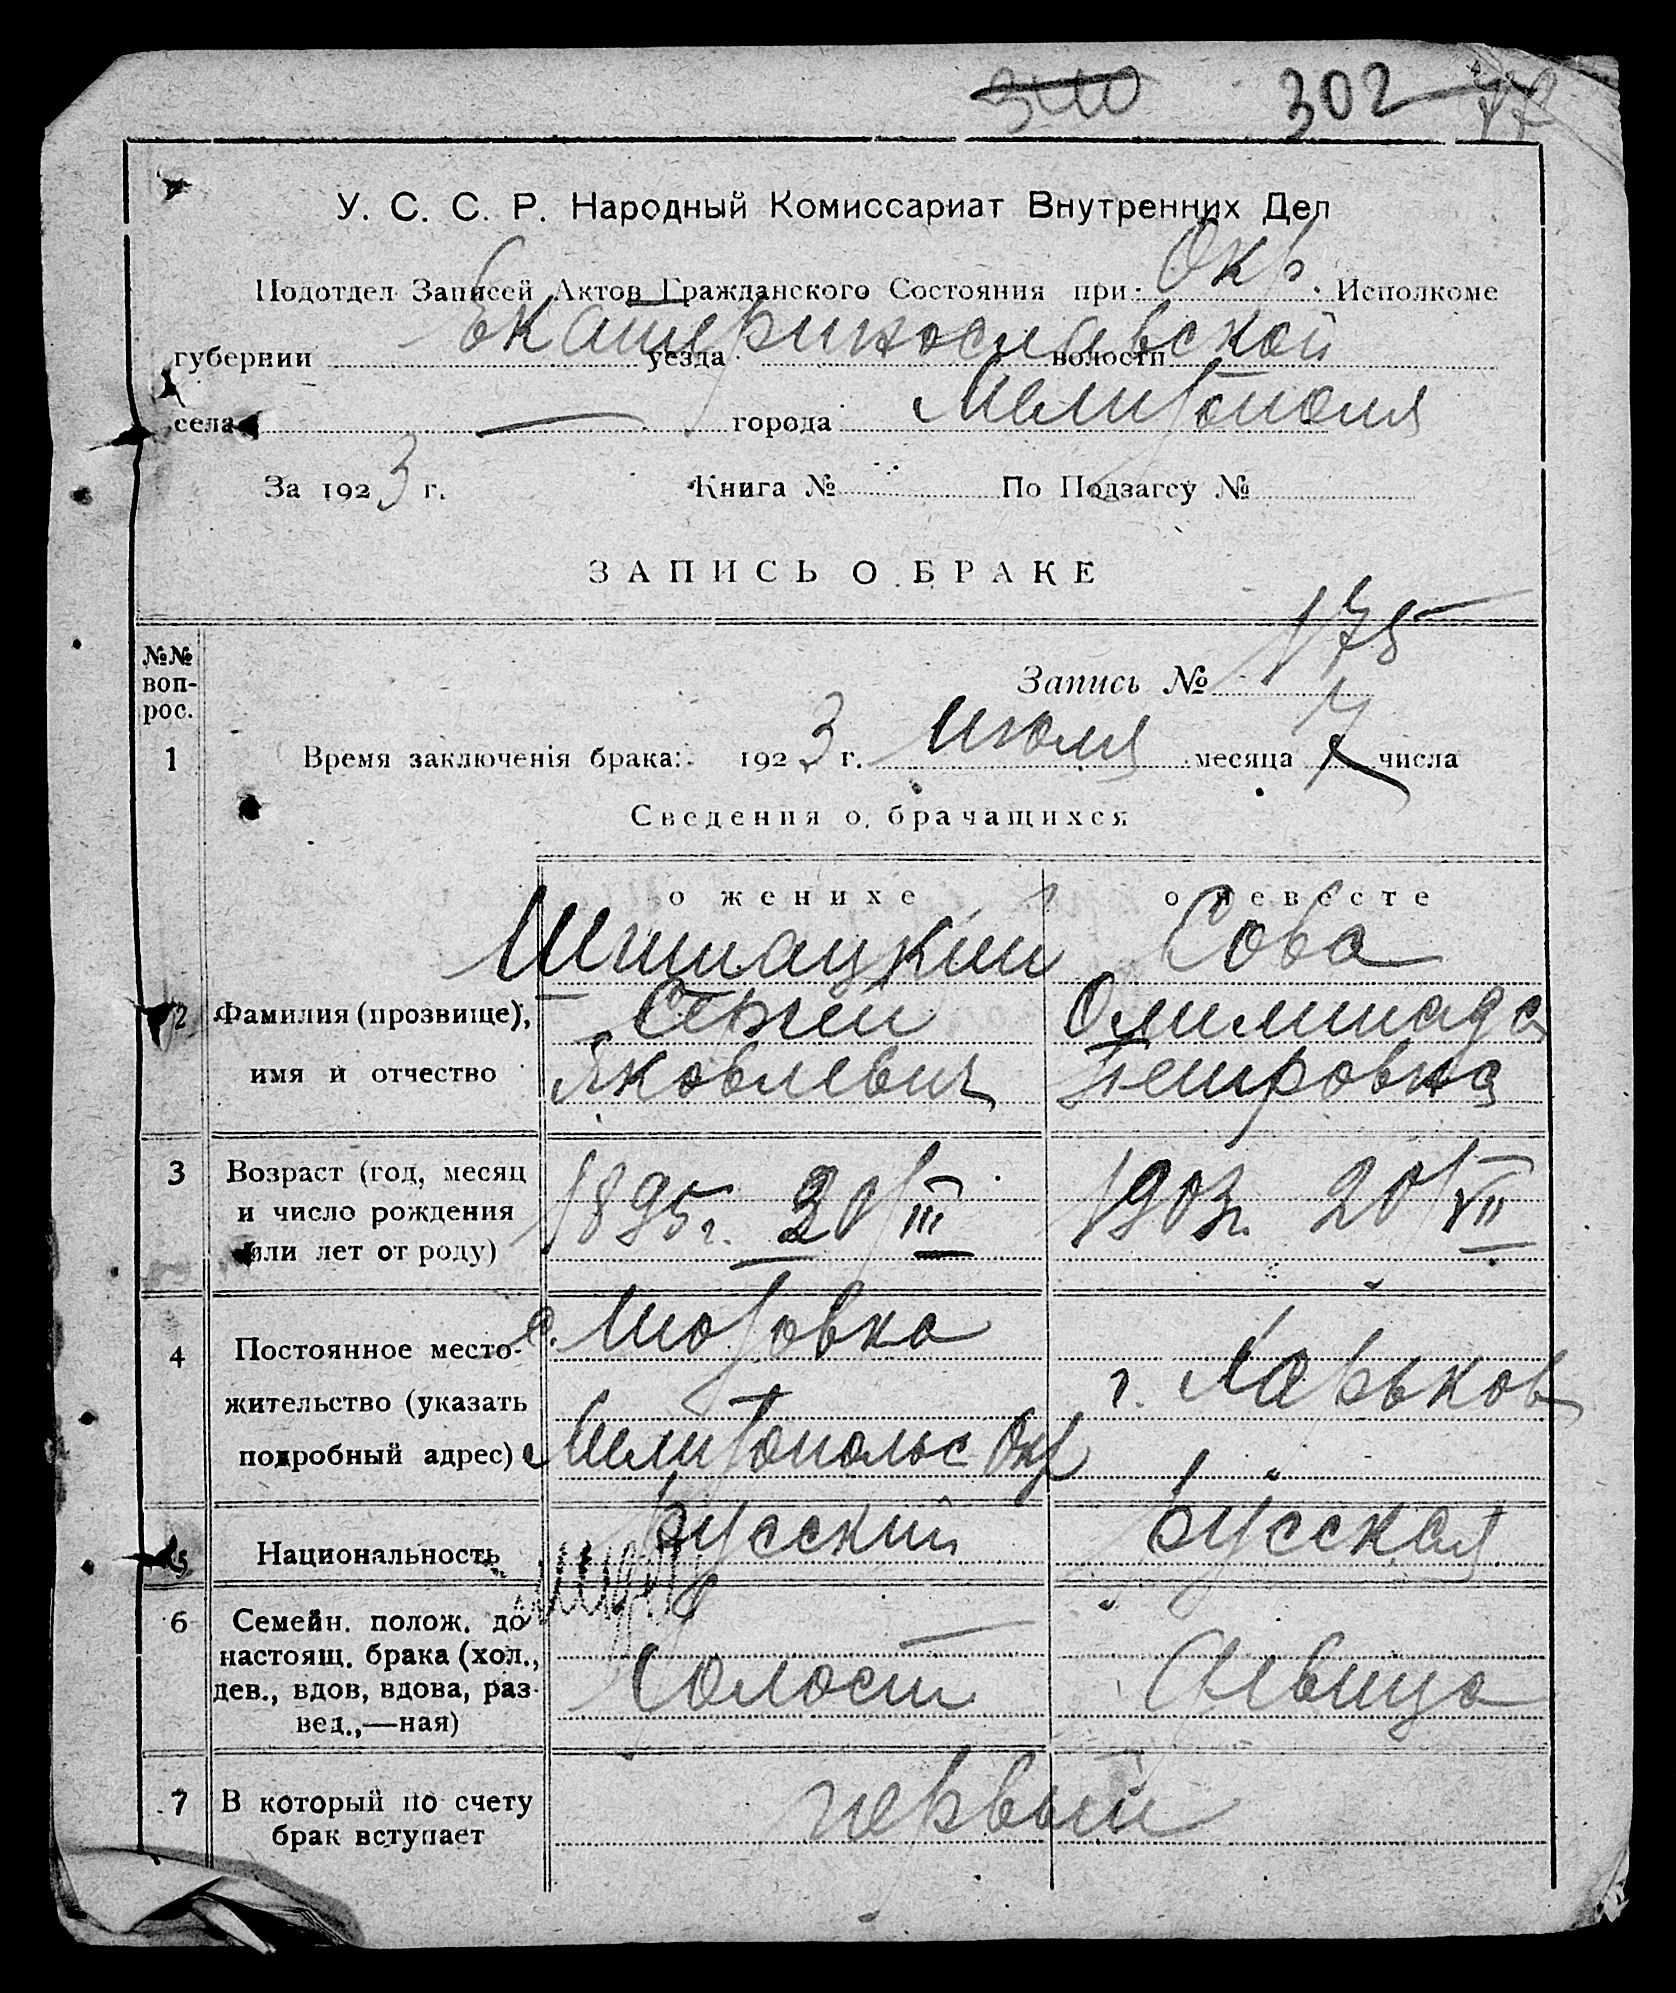 302
У. С. С. Р. Народный Комиссариат Внутренних Дел
Подотдел Записей Актов Гражданского Состояния при Окр. Исполкоме
губернии Екатеринославской уезда волости
села — города Мелитополя
За 1923 г. Книга № По Подзагсу №
ЗАПИСЬ О БРАКЕ
№№ воп-
рос.
Запись № 175
1 Время заключенія брака: 1923 г. июля месяца 7 числа
Сведения о брачащихся
о женихе о невесте
Шишацкий Сова
2 Фамилия (прозвище), Сергей Олимпиада
имя и отчество Яковлевич Петровна
3 Возраст (год, месяц
и число рождения 1895 г. 20/III 1903 г. 20/VII
или лет от роду)
4 Постоянное место-
жительство (указать г. Харьков
подробный адрес) Мелитопольс Окр
5 Национальность Русский Русская
6 Семейн. полож. до
настоящ. брака (хол.,
дев., вдов, вдова, раз- Холост Девица
вед.,—ная)
7 В который по счету первый
брак вступает